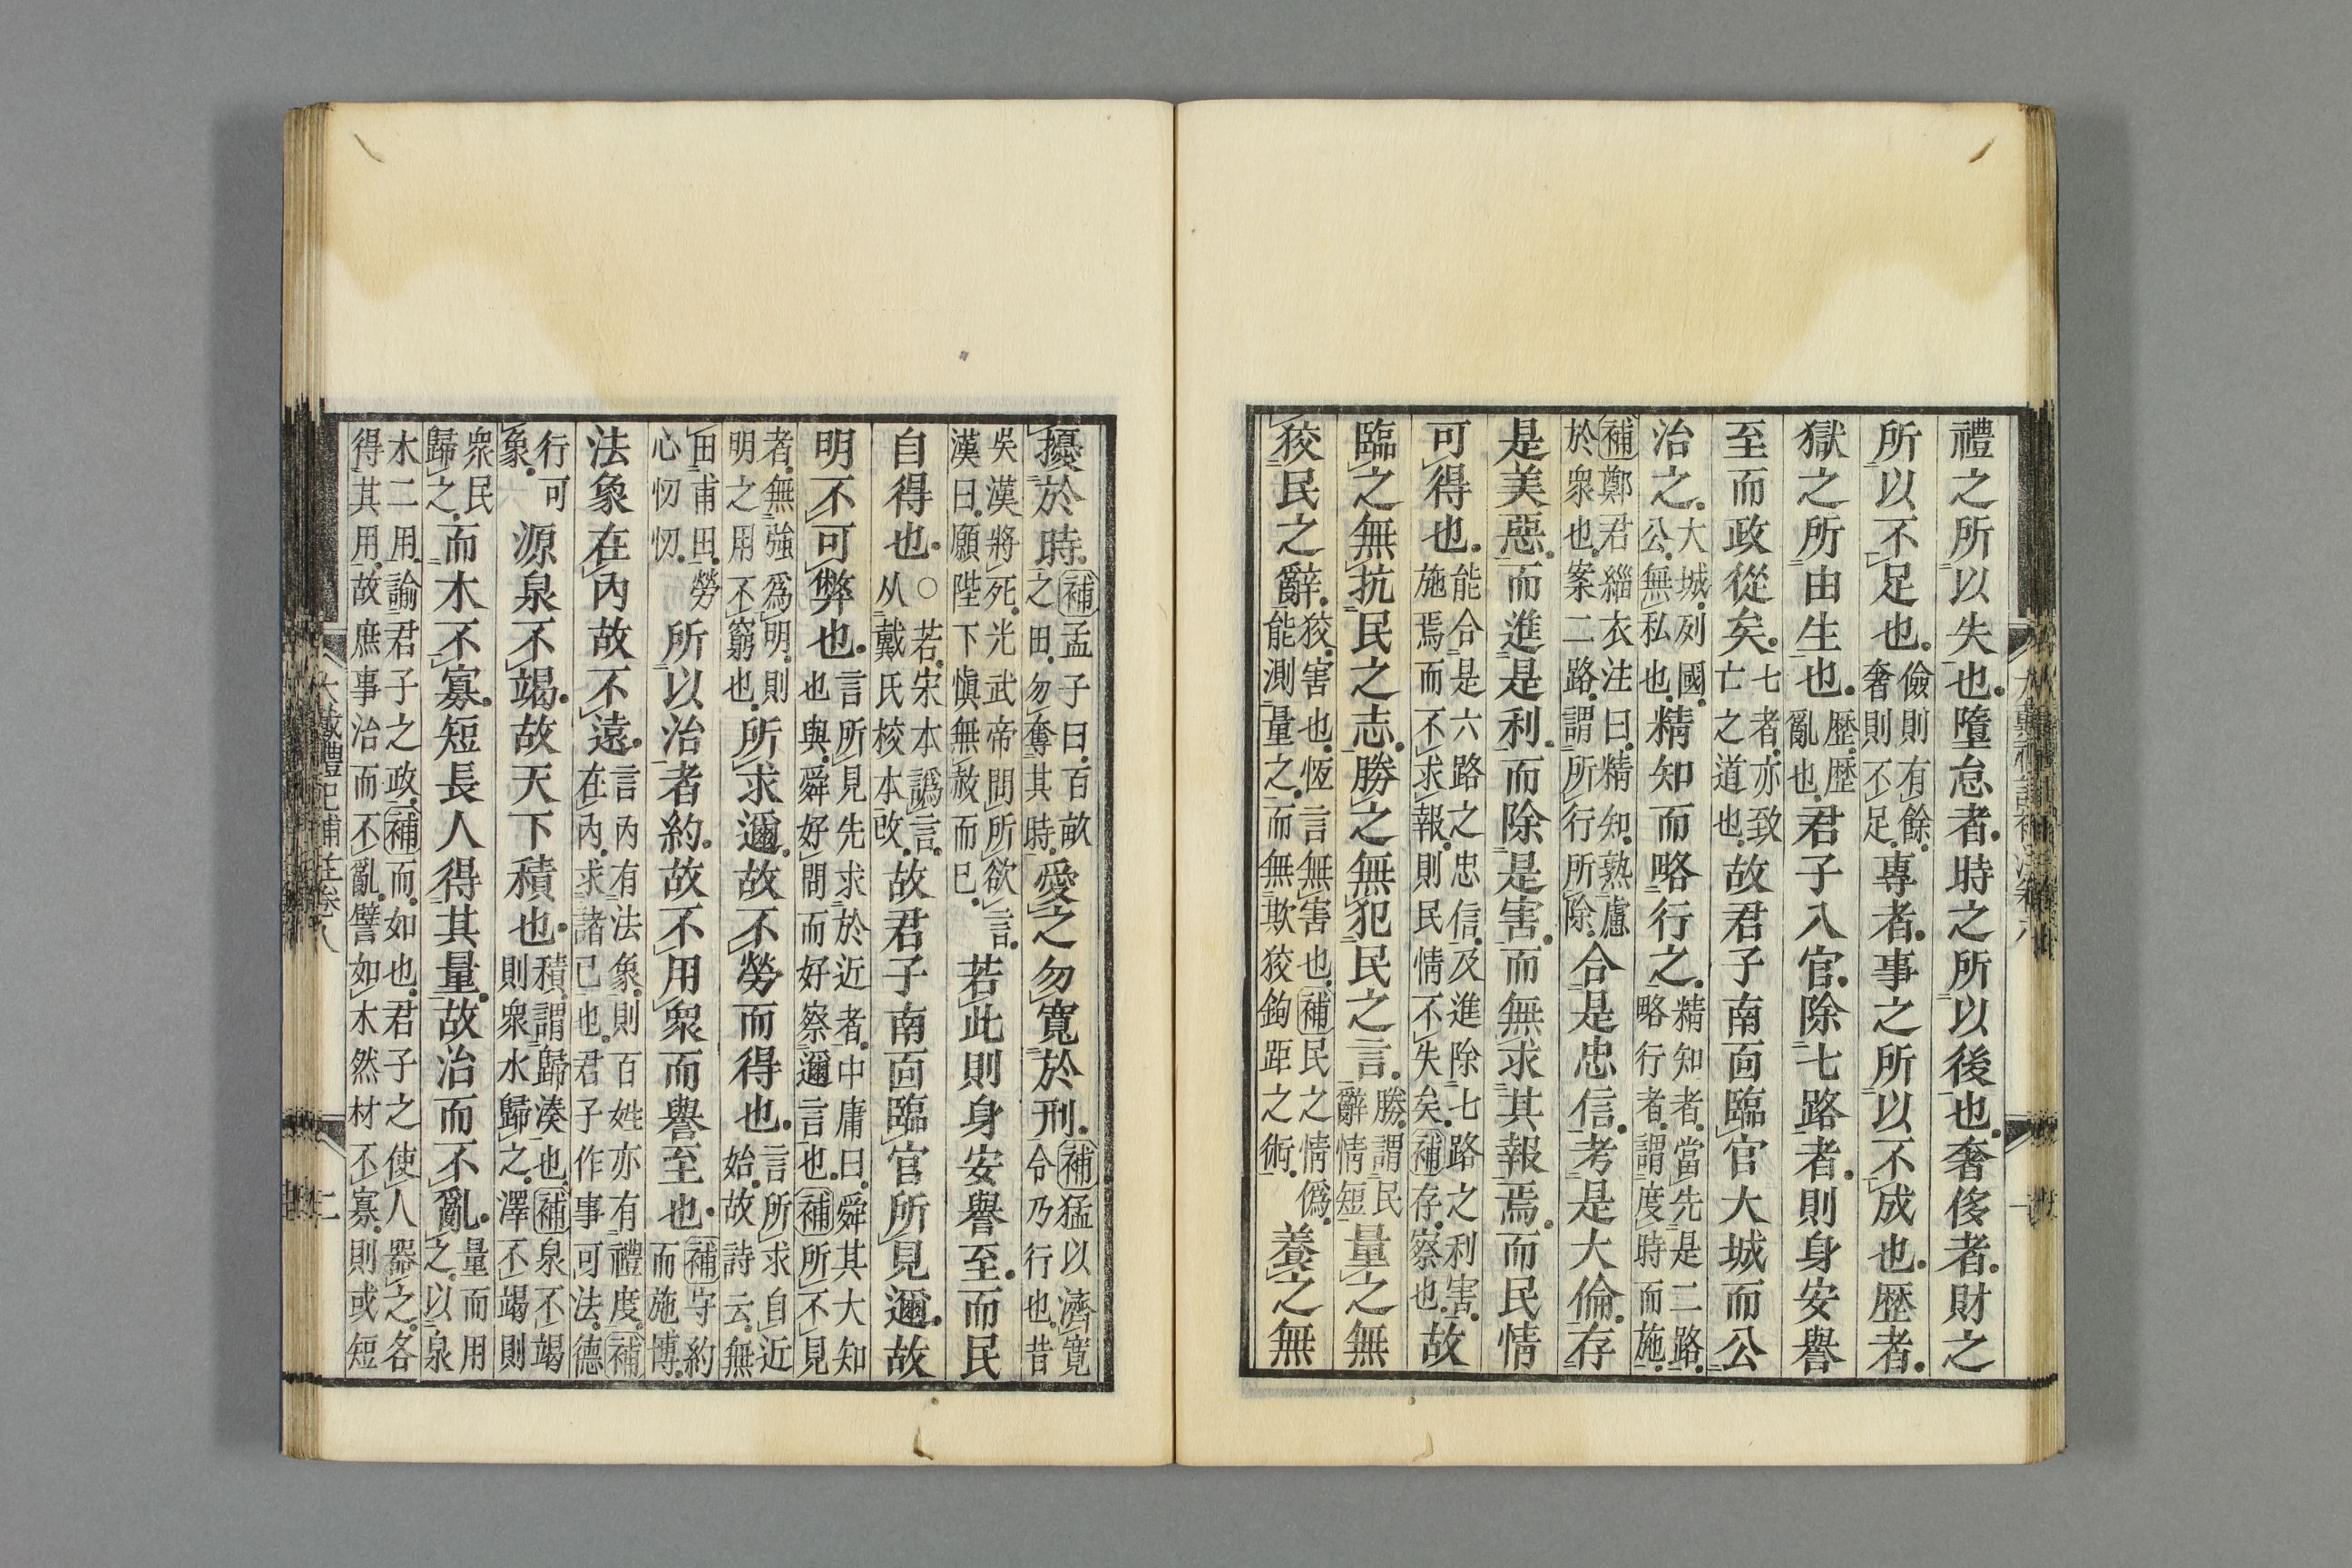 禮之所以失也墮怠者時之所以後也奢侈者財之
所以不足也儉則有餘奢則不足專者事之所以不成也歷者
獄之所由生也歷歷亂也君子入官除七路者則身安譽
至而政從矣七者亦致亡之道也故君子南面臨官大城而公
治之大城列國公無私也精知而略行之精知者當先是二路略行者謂度時而施
補鄭君緇衣注曰精知熟慮於衆也案二路謂所行所除合是忠信考是大倫存
是美惡而進是利而除是害而無求其報焉而民情
可得也能合是六路之忠信及進除七路之利害施焉而不求報則民情不失矣補存察也故
臨之無抗民之志勝之無犯民之言勝謂民辭情短量之無
狡民之辭狡害也恆言無害也補民之情僞能測量之而無欺狡鉤距之術養之無
擾於時補孟子曰百畝之田勿奪其時愛之勿寛於刑補猛以濟寛令乃行也昔
吳漢將死光武帝問所欲言漢曰願陛下愼無赦而已若此則身安譽至而民
自得也○若宋本譌言从戴氏校本改故君子南面臨官所見邇故
明不可弊也言所見先求於近者中庸曰舜其大知也與舜好問而好察邇言也補所不見
者無強爲明則明之用不窮也所求邇故不勞而得也言所求自近始故詩云無
田甫田勞心忉忉所以治者約故不用衆而譽至也補守約而施博
法象在內故不遠言內有法象則百姓亦有禮度補在內求諸己也君子作事可法德
行可象源泉不竭故天下積也積謂歸湊也補泉不竭則衆水歸之澤不竭則
衆民歸之而木不寡短長人得其量故治而不亂量而用之以泉
木二用諭君子之政補而如也君子之使人器之各得其用故庶事治而不亂譬如木然材不寡則或短
大戴禮記補注卷八
二